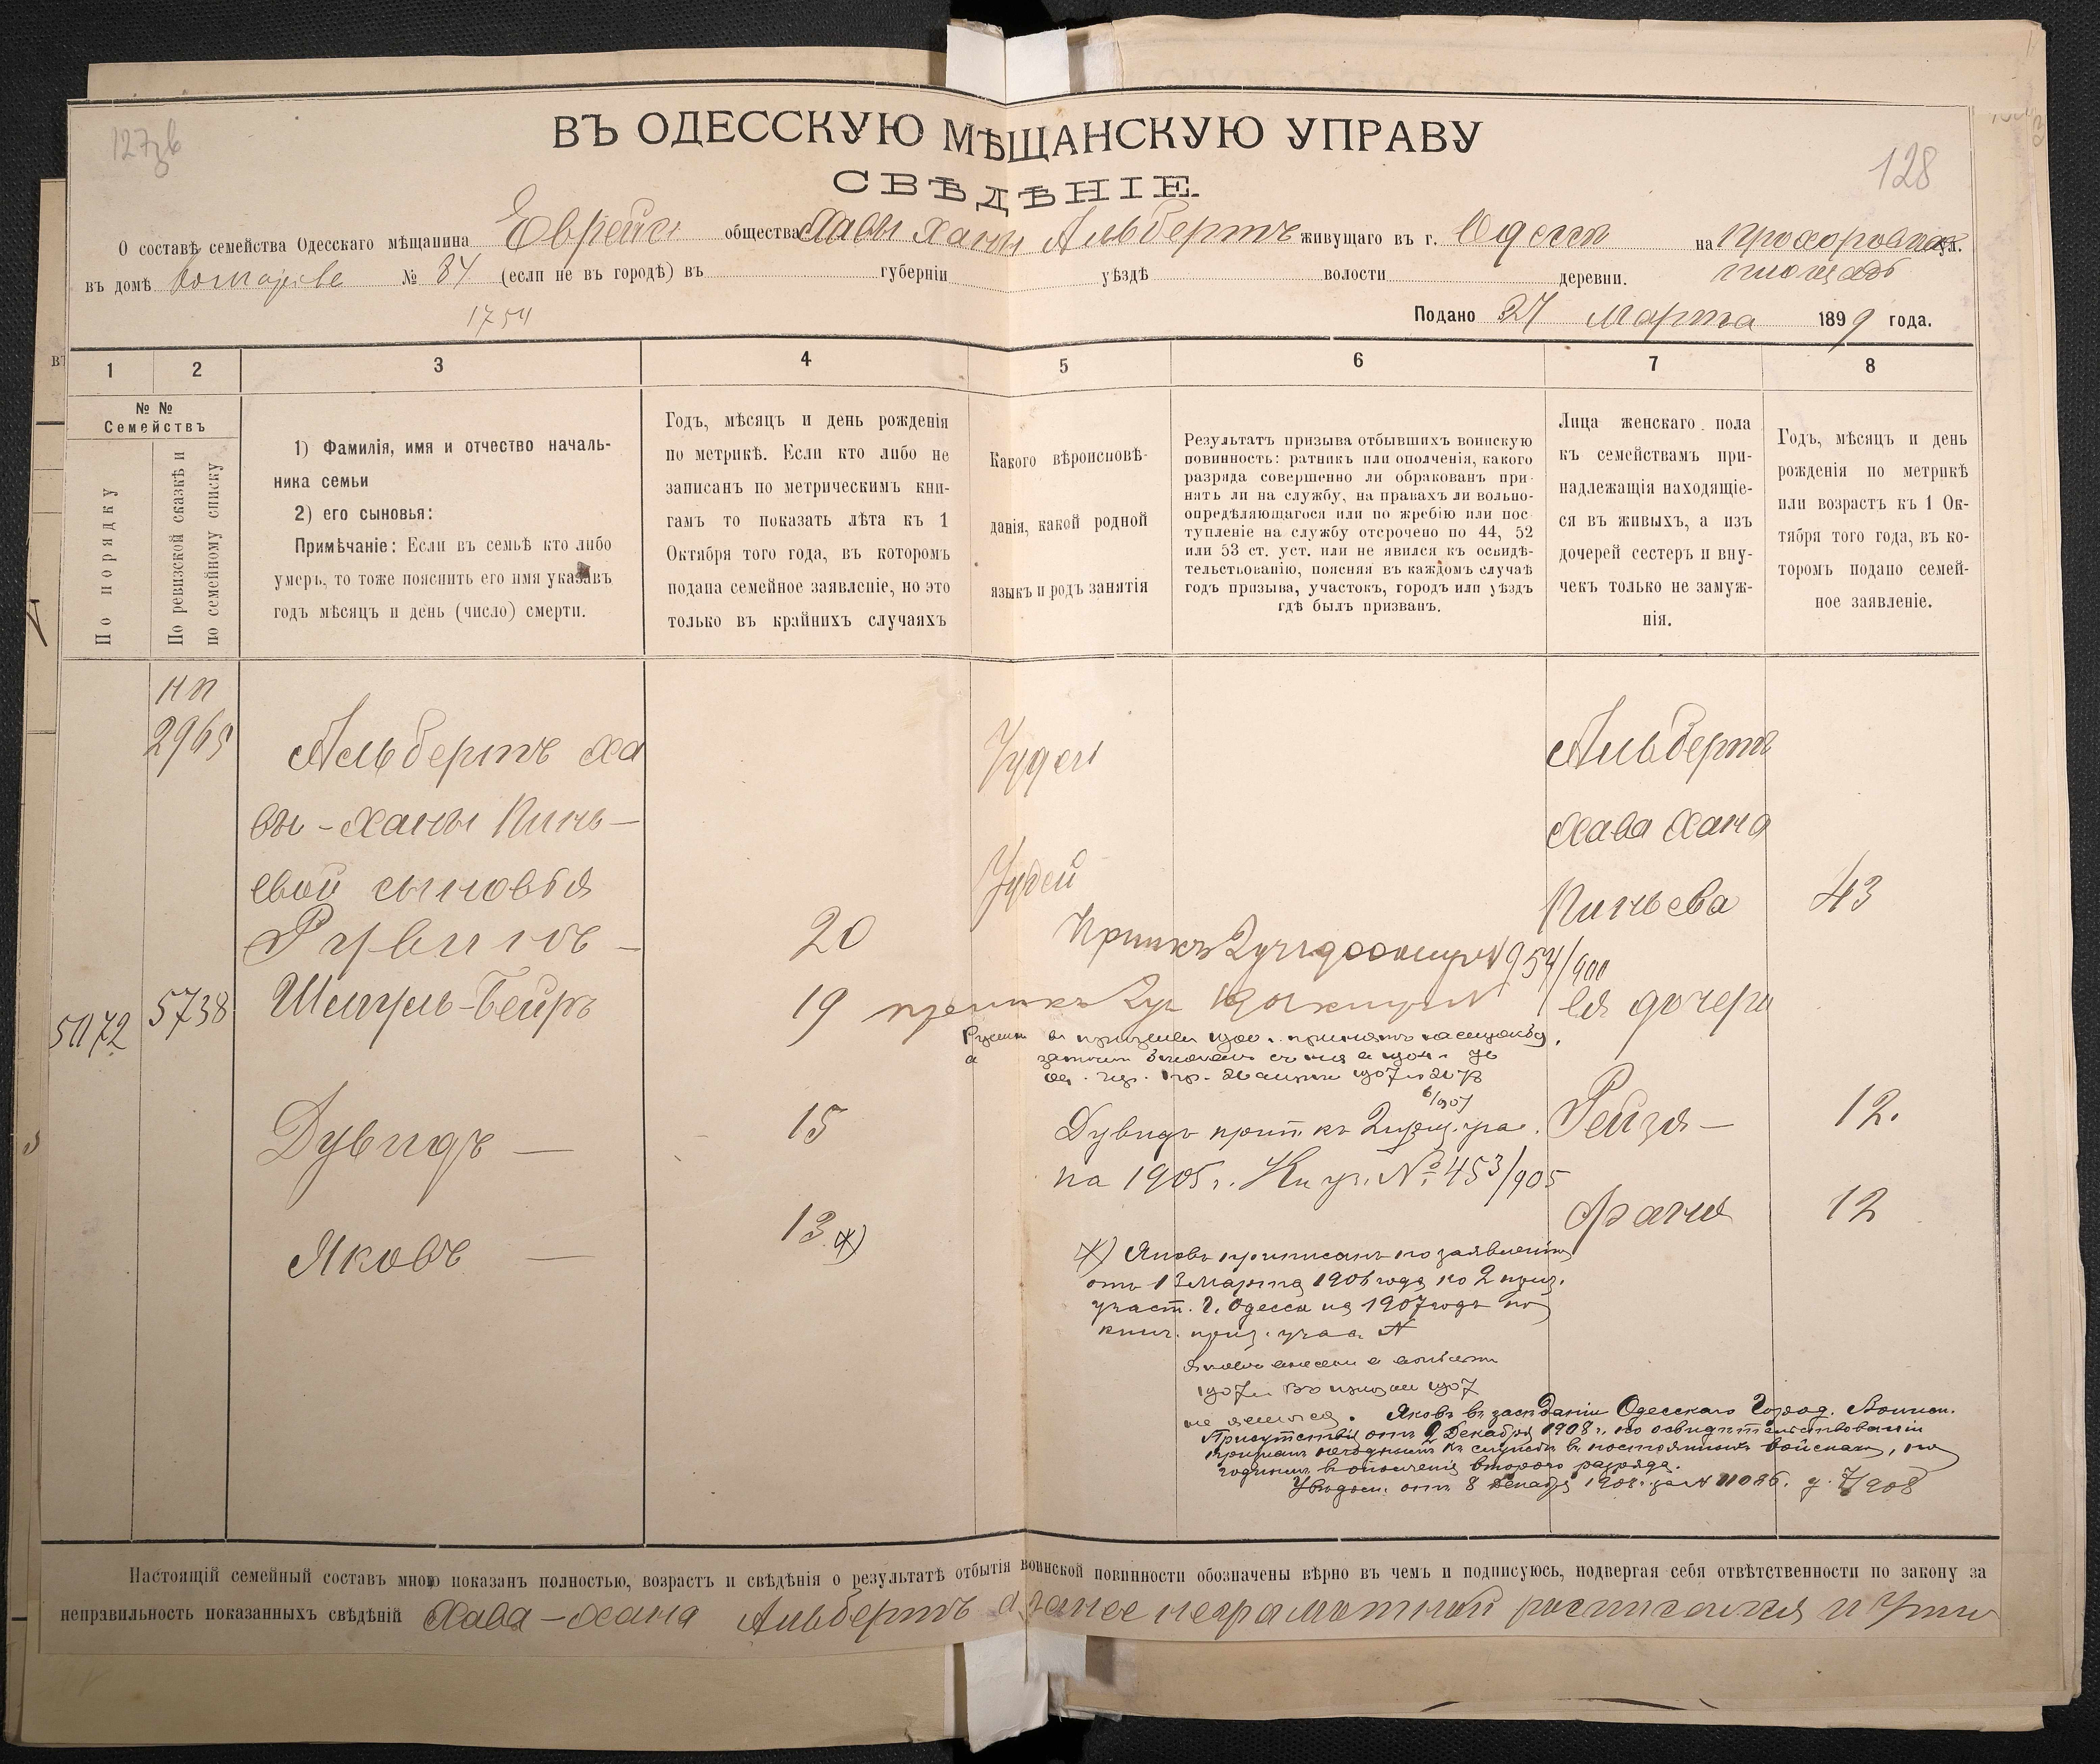 127зв
128
ВЪ ОДЕССКУЮ МѢЩАНСКУЮ УПРАВУ
СВѢДѢНІЕ
О составѣ семейства Одесскаго мѣщанина Еврейск общества Хавы Ханы Альбертъ живущаго въ г. Одессѣ на Прохоровск ул.
въ домѣ № 34 (если не въ городѣ) въ губерніи уѣздѣ волости деревни. площадь
1754
Подано 27 Марта 1899 года.
1 2 3 4 5 6 7 8
№ №
Семействъ
По порядку
По ревизской сказкѣ и
по семейному списку
1) Фамилія, имя и отчество началь-
ника семьи
2) его сыновья:
Примѣчаніе: Если въ семьѣ кто либо
умеръ, то тоже пояснить его имя указавъ
годъ мѣсяцъ и день (число) смерти.
Годъ, мѣсяцъ и день рожденія
по метрикѣ. Если кто либо не
записанъ по метрическимъ кни-
гамъ то показать лѣта къ 1
Октября того года, въ которомъ
подана семейное заявленіе, но это
только въ крайнихъ случаяхъ
Какого вѣроисповѣ-
данія, какой родной
языкъ и родъ занятія
Результатъ призыва отбывшихъ воинскую
повинность: ратникъ или ополченія, какого
разряда совершенно ли обракованъ при-
нятъ ли на службу, на правахъ ли вольно-
опредѣляющагося или по жребію или пос-
тупленіе на службу отсрочено по 44, 52
или 53 ст. уст. или не явился къ освидѣ-
тельствованію, поясняя въ каждомъ случаѣ
годъ призыва, участокъ, городъ или уѣздъ
гдѣ былъ призванъ.
Лица женскаго пола
къ семействамъ при-
надлежащія находящіе-
ся въ живыхъ, а изъ
дочерей сестеръ и вну-
чекъ только не замуж-
нія.
Годъ, мѣсяцъ и день
рожденія по метрикѣ
или возрастъ къ 1 Ок-
тября того года, въ ко-
торомъ подано семей-
ное заявленіе.
нп
2965
Альбертъ Ха
вы-Ханы Пинь-
евой сыновья
Іудей
Альбертъ
Хава Хана
Іудей
Пиньева 43
Рувинъ - 20
954/900
5072 5738 Шмуль-Бейръ 19
Ея дочери
6/907
Дувидъ — 15
Дувидъ прип. къ 2 приз. уча.
на 1905 г. Кн уч. № 453/905
Рейзя - 12.
Яковъ — 13 *)
Фаня 12
*) Яковъ приписанъ по заявленію
отъ 13 Марта 1906 года по 2 приз.
участ. г. Одессы на 1907 годъ по
книг. приз. учас. №
1907 г. Въ призыв 1907
не явился. Яковъ въ засѣданіи Одесскаго Город. Воинск.
Присутствія отъ 2 Декабря 1908 г. по освидѣтельствованіи
признанъ негоднымъ къ службѣ въ постоянныхъ войскахъ, но
годнымъ въ ополченіе второго разряда.
Увѣдом. отъ 8 Декабря 1908 г. за № 11086. д. 7/908
Настоящій семейный составъ мною показанъ полностью, возрастъ и свѣдѣнія о результатѣ отбытія воинской повинности обозначены вѣрно въ чемъ и подписуюсь, подвергая себя отвѣтственности по закону за
неправильность показанныхъ свѣдѣній Хава-Хана Альбертъ а занее неграмотной росписался